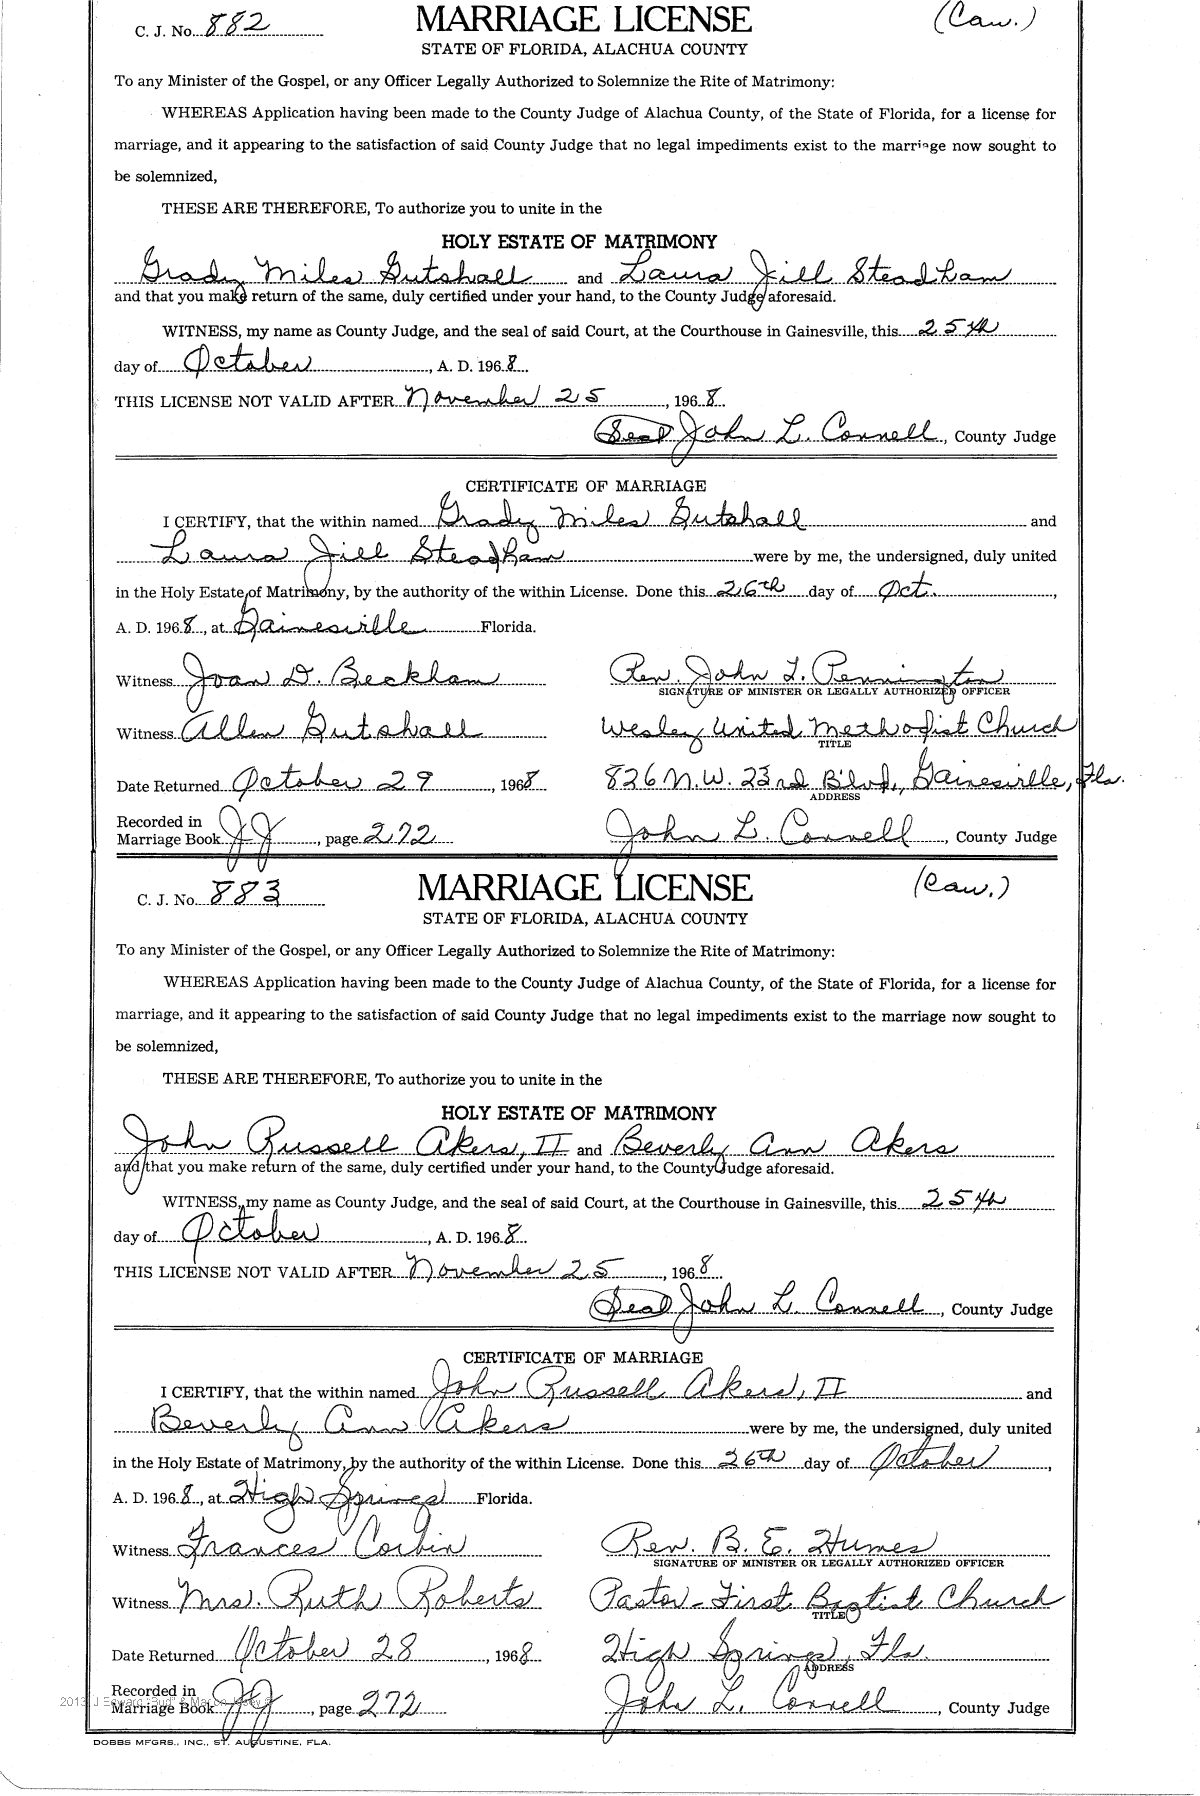 C. J. No. 882 MARRIAGE LICENSE (Cau.)
STATE OF FLORIDA, ALACHUA COUNTY
To any Minister of the Gospel, or any Officer Legally Authorized to Solemnize the Rite of Matrimony:
WHEREAS Application having been made to the County Judge of Alachua County, of the State of Florida, for a license for
marriage, and it appearing to the satisfaction of said County Judge that no legal impediments exist to the marriage now sought to
be solemnized,
THESE ARE THEREFORE, To authorize you to unite in the
HOLY ESTATE OF MATRIMONY
Grady Miles Gutshall and Laura Jill Steadham
and that you make return of the same, duly certified under your hand, to the County Judge aforesaid.
WITNESS, my name as County Judge, and the seal of said Court, at the Courthouse in Gainesville, this 25th
day of October, A. D. 1968.
THIS LICENSE NOT VALID AFTER November 25, 1968.
Seal John L. Connell, County Judge
CERTIFICATE OF MARRIAGE
I CERTIFY, that the within named Grady Miles Gutshall and
Laura Jill Steadham were by me, the undersigned, duly united
in the Holy Estate of Matrimony, by the authority of the within License. Done this 26th day of Oct.,
A. D. 1968, at Gainesville Florida.
Witness Joan D. Beckham Rev. John L. Pennington
SIGNATURE OF MINISTER OR LEGALLY AUTHORIZED OFFICER
Witness Allen Gutshall Wesley United Methodist Church
TITLE
Date Returned October 29, 1968 826 N.W. 23rd Blvd., Gainesville, Fla.
ADDRESS
Recorded in
Marriage Book JJ, page 272 John L. Connell, County Judge
C. J. No. 883 MARRIAGE LICENSE (Cau.)
STATE OF FLORIDA, ALACHUA COUNTY
To any Minister of the Gospel, or any Officer Legally Authorized to Solemnize the Rite of Matrimony:
WHEREAS Application having been made to the County Judge of Alachua County, of the State of Florida, for a license for
marriage, and it appearing to the satisfaction of said County Judge that no legal impediments exist to the marriage now sought to
be solemnized,
THESE ARE THEREFORE, To authorize you to unite in the
HOLY ESTATE OF MATRIMONY
John Russell Akers, II and Beverly Ann Akers
and that you make return of the same, duly certified under your hand, to the County Judge aforesaid.
WITNESS, my name as County Judge, and the seal of said Court, at the Courthouse in Gainesville, this 25th
day of October, A. D. 1968.
THIS LICENSE NOT VALID AFTER November 25, 1968.
Seal John L. Connell, County Judge
CERTIFICATE OF MARRIAGE
I CERTIFY, that the within named John Russell Akers, II and
Beverly Ann Akers were by me, the undersigned, duly united
in the Holy Estate of Matrimony, by the authority of the within License. Done this 26th day of October,
A. D. 1968, at High Springs Florida.
Witness Frances Corbin Rev. B. E. Humes
SIGNATURE OF MINISTER OR LEGALLY AUTHORIZED OFFICER
Witness Mrs. Ruth Roberts Pastor - First Baptist Church
TITLE
Date Returned October 28, 1968 High Springs, Fla.
ADDRESS
Recorded in
Marriage Book JJ, page 272 John L. Connell, County Judge
DOBBS MFGRS., INC., ST. AUGUSTINE, FLA.